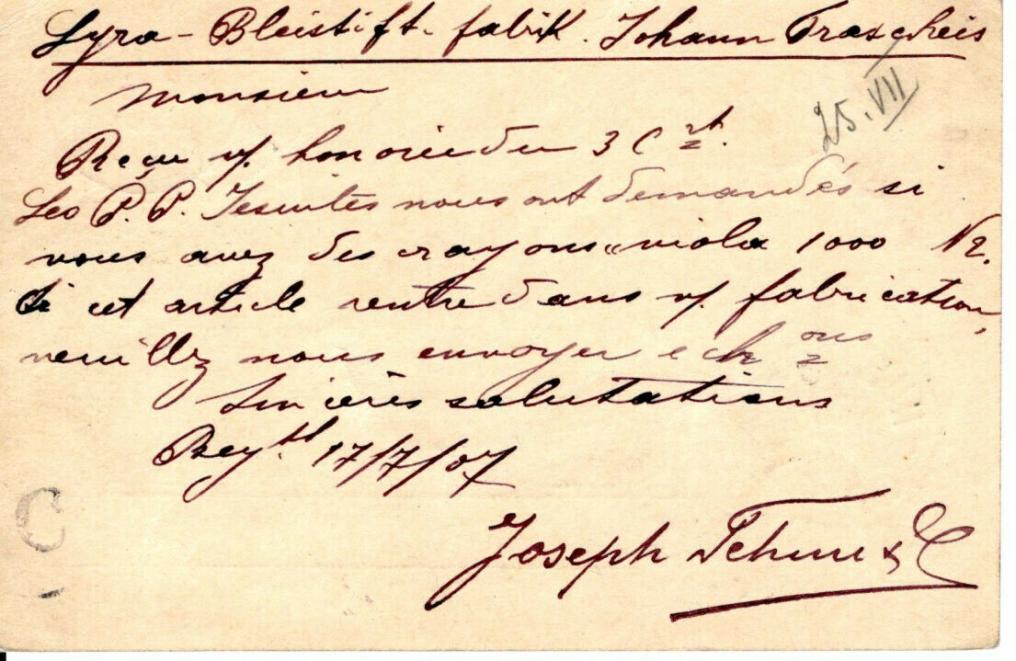 Lyra - Bleistift. fabrik. Johann Frascheis
25.VII
Monsieur
Reçu v/. honorée du 3 Ct.
Les P. P. Jesuites nous ont demandés si
vous avez des crayons "viola 1000 N2.
Si cet article rentre dans v/. fabrication,
veuillez nous envoyer echons
Sincères salutations
Beyth 17/7/07
Joseph & C
C